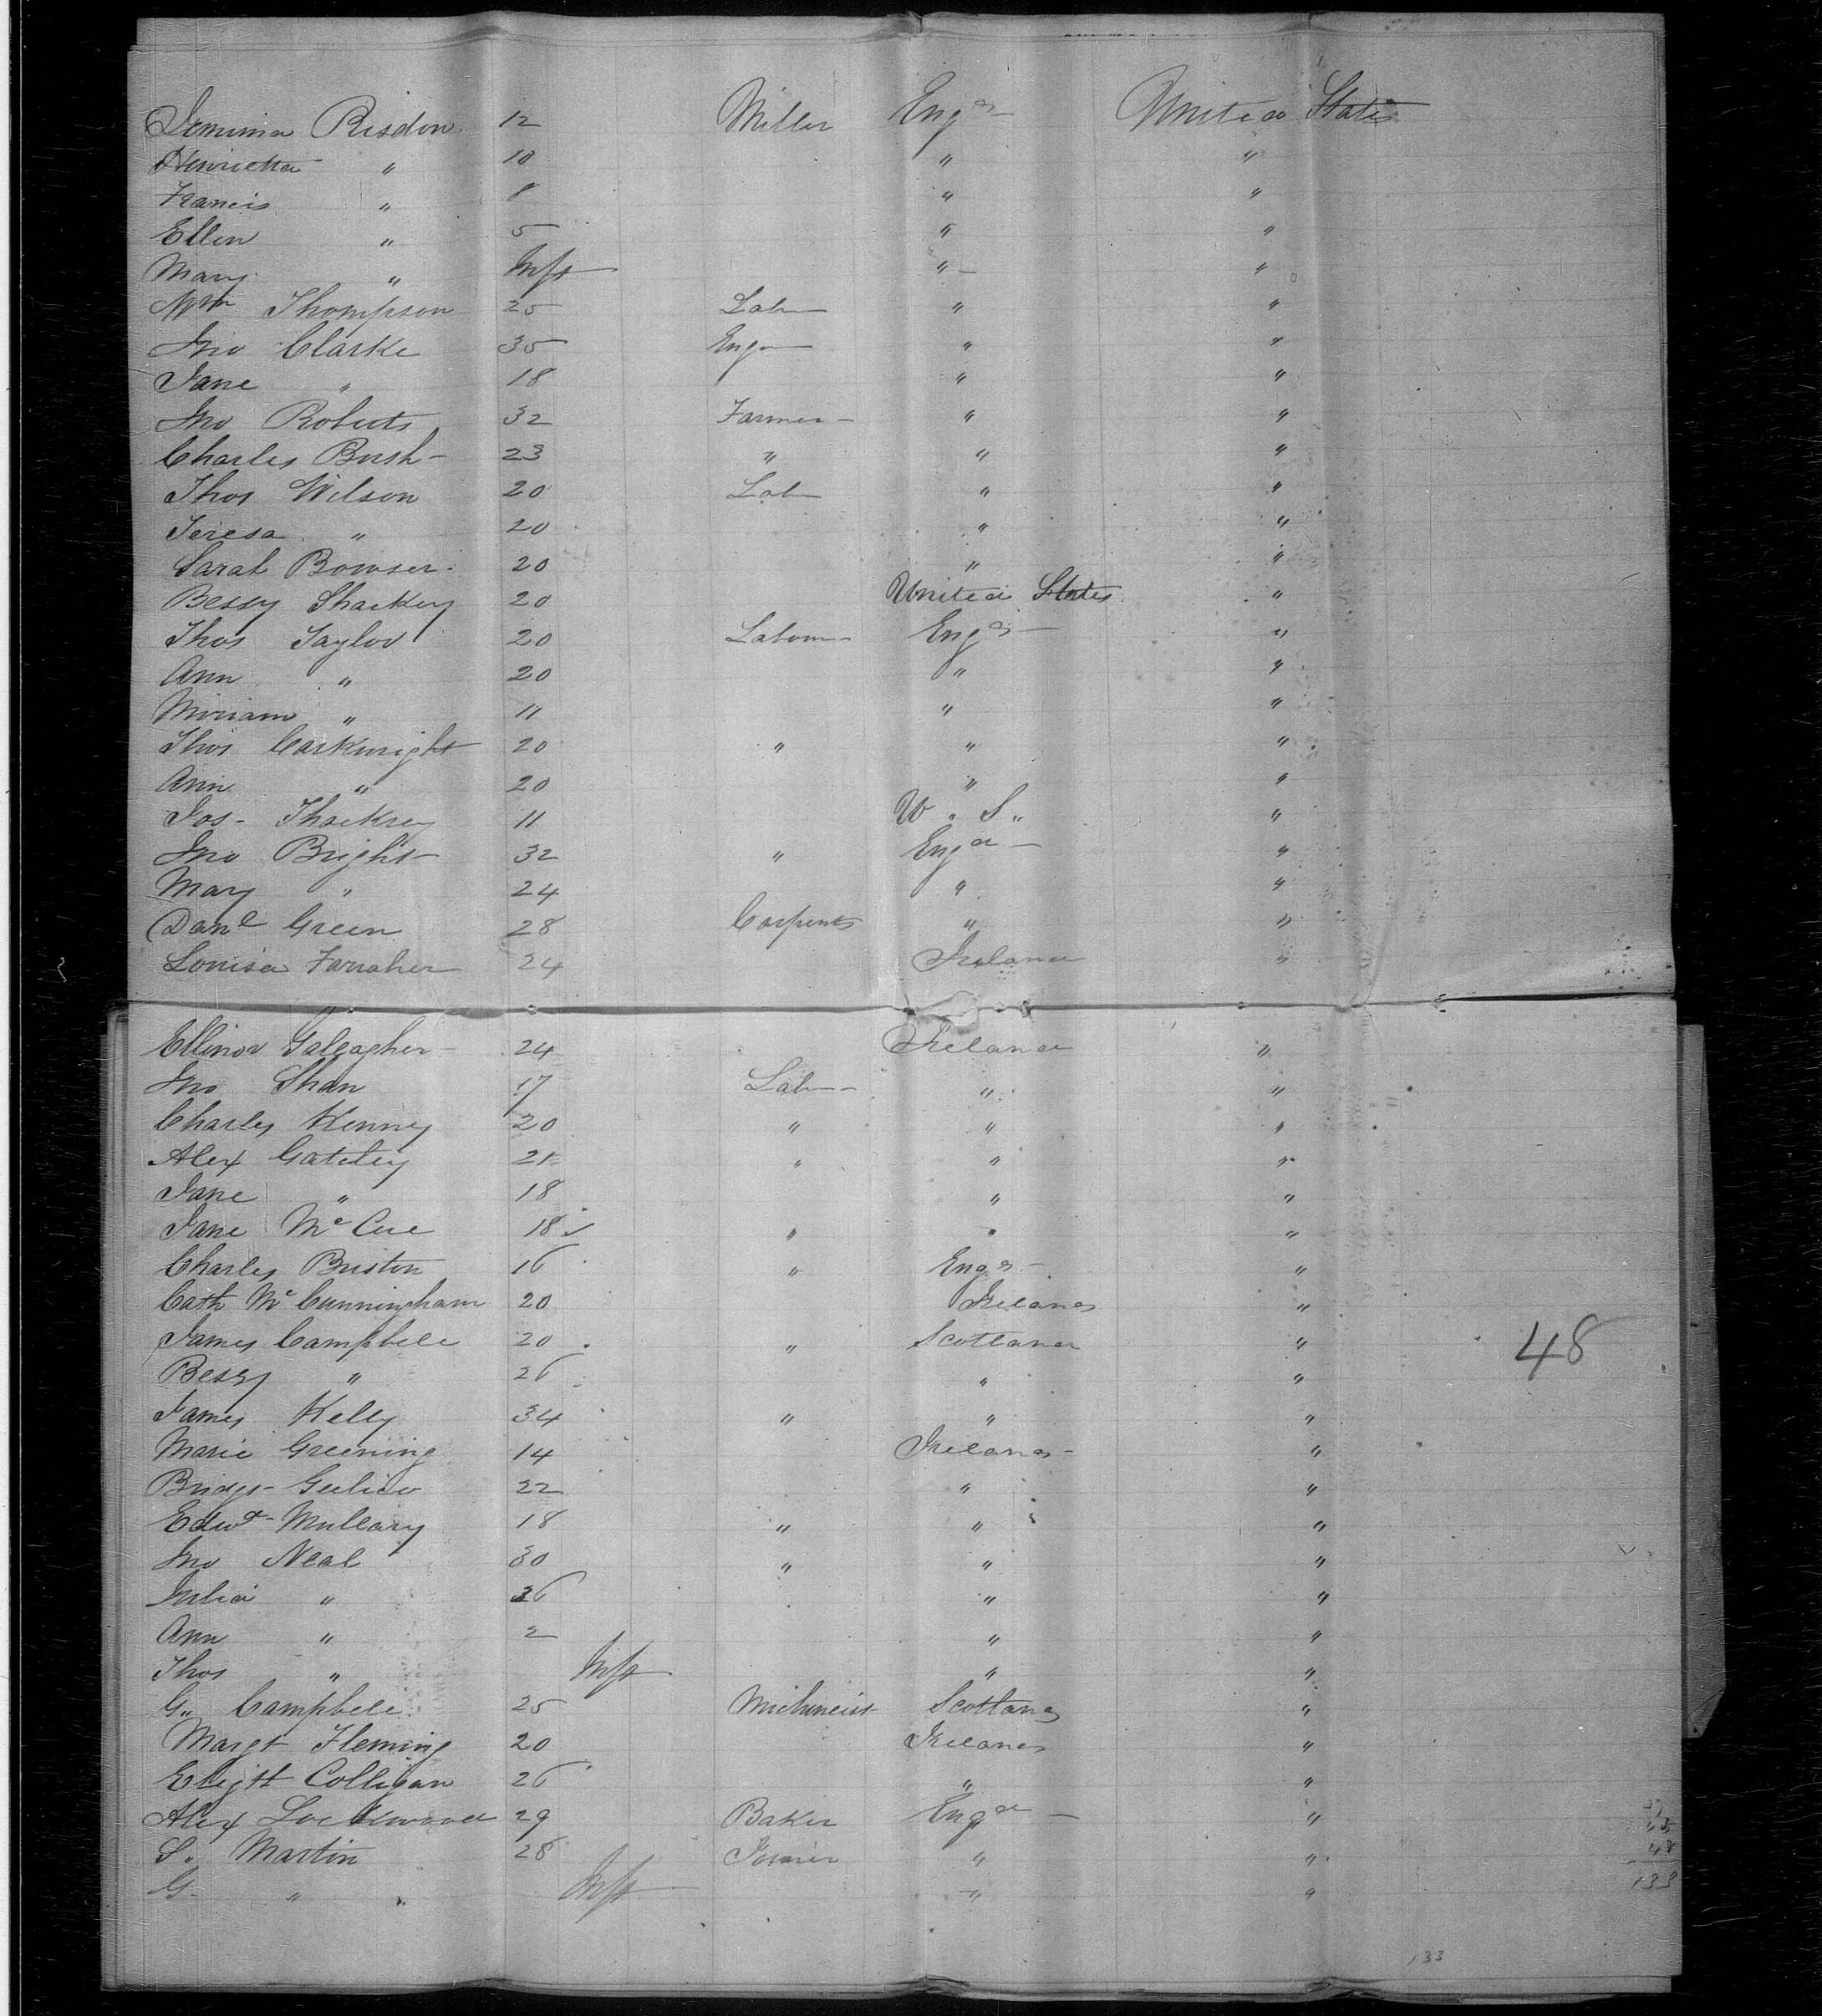 Jemima Risdon 12 Miller Engd United States
Henrietta " 10 " "
Francis " 8 " "
Ellen " 5 " "
Mary " Inft " "
Wm Thompson 25 Labr " "
Jno Clarke 35 Engr " "
Jane " 18 " "
Jno Roberts 32 Farmer " "
Charles Bush 23 " " "
Thos Wilson 20 Labr " "
Teresa " 20 " "
Sarah Bowser 20 " "
Bessy Shackey 20 United States "
Thos Taylor 20 Labour Engd "
Ann " 20 " "
Miriam " 11 " "
Thos Carkwright 20 " " "
Ann " 20 " "
Jos Thackrey 11 U.S. "
Jno Bright 32 " Engd "
Mary " 24 " "
Danl Green 28 Carpenter " "
Louisa Farraher 24 Ireland "
Ellinor Galeagher 24 Ireland "
Jno Shan 17 Labr " "
Charles Kenney 20 " " "
Alex Gateley 21 " " "
Jane " 18 " "
Jane McCue 18 " " "
Charles Briston 16 " Engd "
Cath McCunningham 20 Ireland "
James Campbell 20 " Scotland " 48
Bessy " 26 " "
James Kelly 34 " " "
Marie Greening 14 Ireland "
22 " "
Edwd Mulleary 18 " " "
Jno Neal 30 " " "
Julia " 26 " "
Ann " 2 " "
Thos " Inft " "
G. Campbell 25 Scotland "
Margt Fleming 20 Ireland "
Elizth Colligan 26 " "
Alex Lockwood 29 Baker Engd "
S. Martin 28 Joiner " " 48
G. " Inft " " 133
133